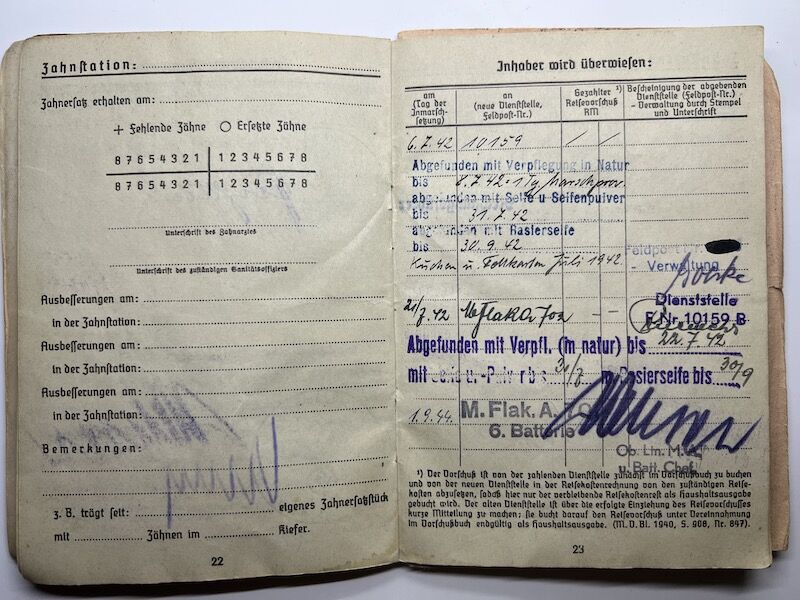 Zahnstation:
Zahnersatz erhalten am:
+ Fehlende Zähne O Ersetzte Zähne
8 7 6 5 4 3 2 1 | 1 2 3 4 5 6 7 8
8 7 6 5 4 3 2 1 | 1 2 3 4 5 6 7 8
Unterschrift des Zahnarztes
Unterschrift des zuständigen Sanitätsoffiziers
Ausbesserungen am:
in der Zahnstation:
Ausbesserungen am:
in der Zahnstation:
Ausbesserungen am:
in der Zahnstation:
Bemerkungen:
z. B. trägt seit: eigenes Zahnersatzstück
mit Zähnen im Kiefer.
22
Inhaber wird überwiesen:
am (Tag der Inmarsch-setzung)
an (neue Dienststelle, Feldpost-Nr.)
Gezahlter ¹) Reisevorschuß RM
Bescheinigung der abgebenden Dienststelle (Feldpost-Nr.) - Verwaltung durch Stempel und Unterschrift
6.7.42 10159 / /
Abgefunden mit Verpflegung in Natur
bis 8.7.42
abgefunden mit Seife u Seifenpulver
bis 31.7.42
abgefunden mit Rasierseife
bis 30.9.42
Juli 1942
Feldpost
- Verwaltung
Dienststelle
F.Nr. 10159 B
21/7.42 - -
22.7.42
Abgefunden mit Verpfl. (in natur) bis
mit bis 31/7 Rasierseife bis 30/9
1.9.44. M. Flak. A.
6. Batterie
Ob. Ltn. M. A.
u. Batt. Chef
¹) Der Vorschuß ist von der zahlenden Dienststelle zunächst im Vorschußbuch zu buchen
und von der neuen Dienststelle in der Reisekostenrechnung von den zuständigen Reise-
kosten abzusetzen, sodaß hier nur der verbleibende Reisekostenrest als Haushaltsausgabe
gebucht wird. Der alten Dienststelle ist über die erfolgte Einziehung des Reisevorschusses
kurze Mitteilung zu machen; sie bucht darauf den Reisevorschuß unter Vereinnahmung
im Vorschußbuch endgültig als Haushaltsausgabe. (M. D. Bl. 1940, S. 908, Nr. 847).
23